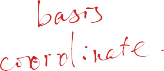 basis
coordinate.